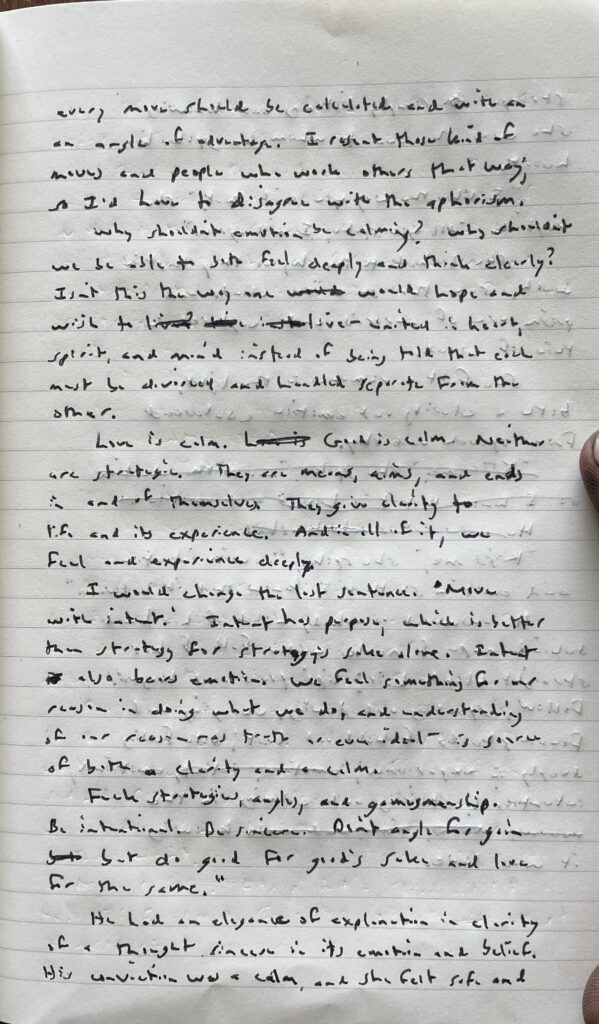 every move should be calculated and with an
an angle of advantage. I resent those kind of
moves and people who work others that way,
so I'd have to disagree with the aphorism.
Why shouldn't emotion be calming? Why shouldn't
we be able to both feel deeply and think clearly?
Isn't this the way one would would hope and
wish to live? live - united in heart,
spirit, and mind instead of being told that each
must be divorced and handled separate from the
other.
Love is calm. Love is Good is calm. Neither
are strategic. They are means, aims, and ends
in and of themselves. They give clarity to
life and its experience. And in all of it, we
feel and experience deeply.
I would change the last sentence. "Move
with intent." Intent has purpose, which is better
than strategy for strategy's sake alone. Intent
also bears emotion. We feel something for our
reason in doing what we do, and understanding
of our reason as truth or even ideal - is source
of both a clarity and a calm.
Fuck strategies, angles, and gamesmanship.
Be intentional. Be sincere. Don't angle for gain
but but do good for good's sake and love
for the same."
He had an elegance of explanation in clarity
of a thought sincere in its emotion and belief.
His conviction was a calm, and she felt safe and